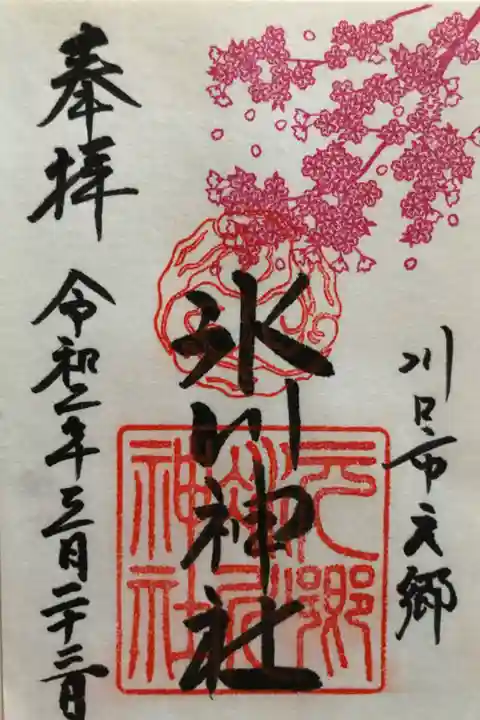 川口市元郷
氷川神社
元郷
氷川
神社
奉拝
令和二年三月二十三日